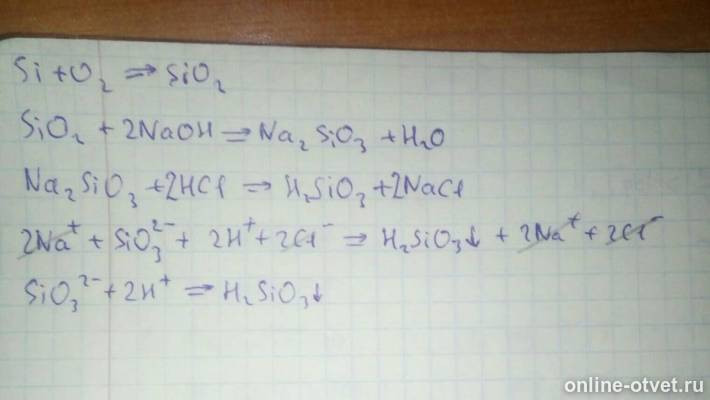 Si + O₂ ⇒ SiO₂
SiO₂ + 2NaOH ⇒ Na₂SiO₃ + H₂O
Na₂SiO₃ + 2HCl ⇒ H₂SiO₃ + 2NaCl
2Na⁺ + SiO₃²⁻ + 2H⁺ + 2Cl⁻ ⇒ H₂SiO₃↓ + 2Na⁺ + 2Cl⁻
SiO₃²⁻ + 2H⁺ ⇒ H₂SiO₃↓
online-otvet.ru